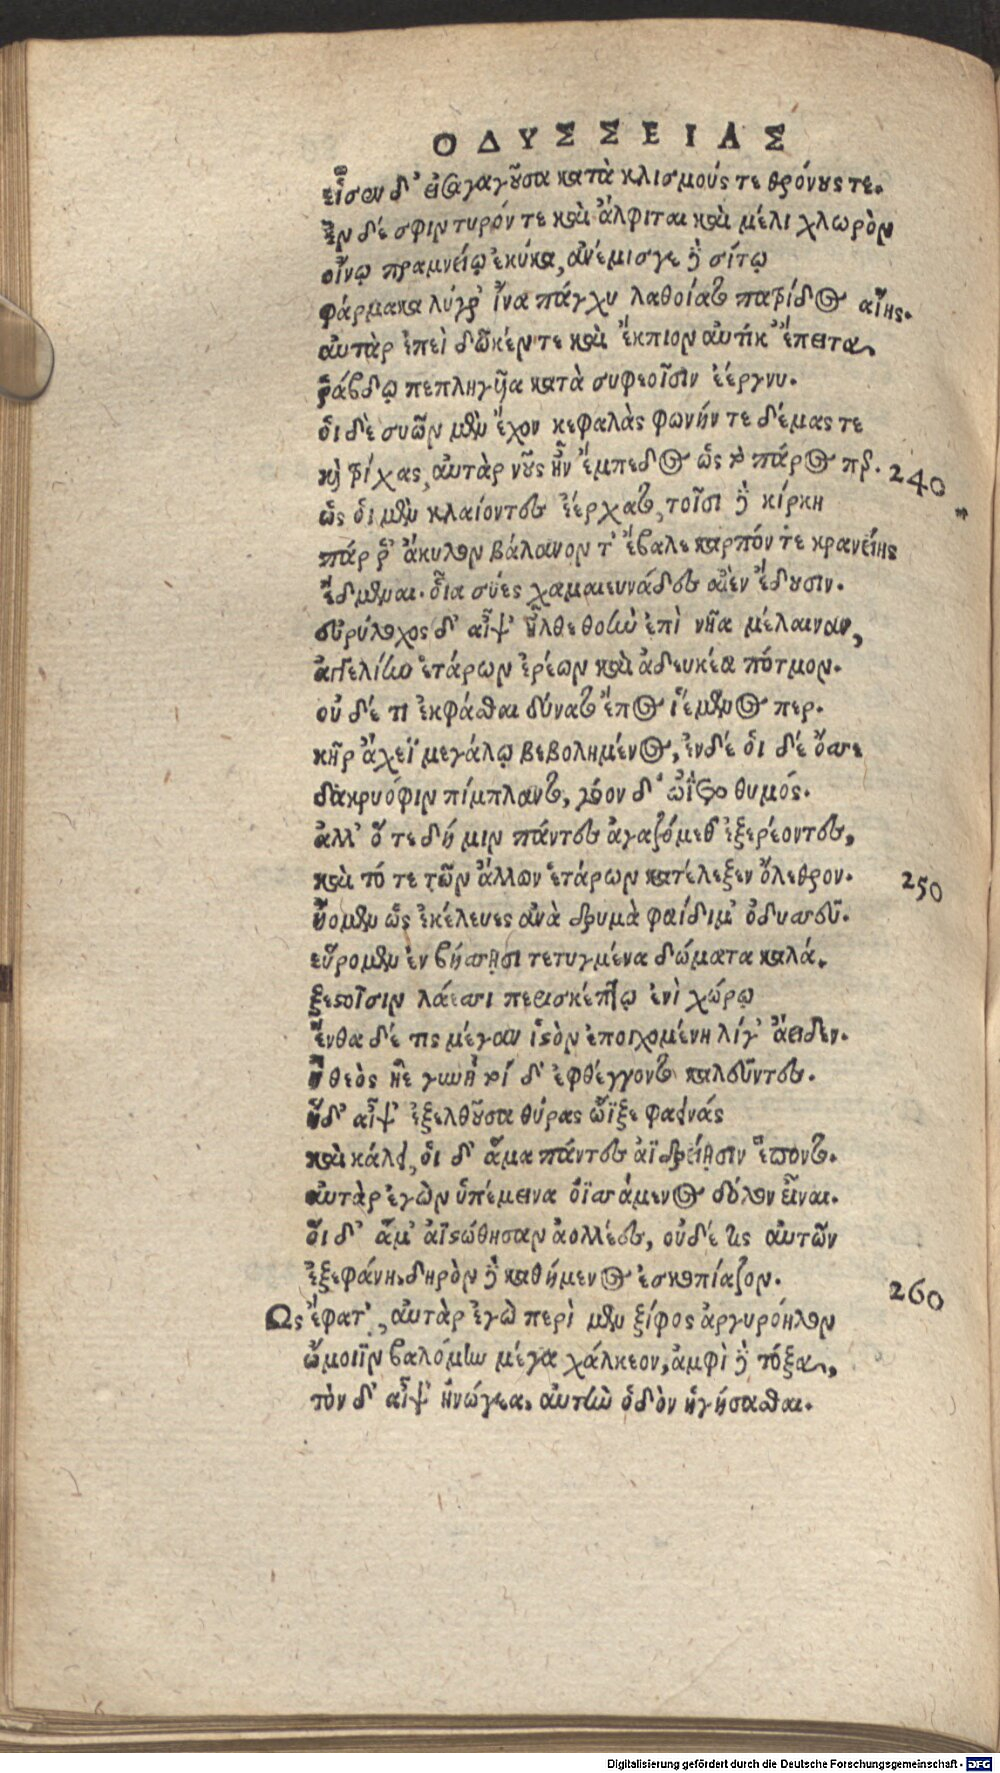 ΟΔΥΣΣΕΙΑΣ
εἷσεν δ' εἰσαγαγοῦσα κατὰ κλισμούς τε θρόνους τε.
ἐν δέ σφιν τυρόν τε καὶ ἄλφιτα καὶ μέλι χλωρὸν
οἴνῳ πραμνείῳ ἐκύκα, ἀνέμισγε δὲ σίτῳ
φάρμακα λύγρ' ἵνα πάγχυ λαθοίατο πατρίδος αἴης.
αὐτὰρ ἐπεὶ δῶκέν τε καὶ ἔκπιον αὐτίκ' ἔπειτα
ῥάβδῳ πεπληγυῖα κατὰ συφεοῖσιν ἐέργνυ.
οἱ δὲ συῶν μὲν ἔχον κεφαλὰς φωνήν τε δέμας τε
καὶ τρίχας, αὐτὰρ νοῦς ἦν ἔμπεδος ὡς τὸ πάρος περ. 240
ὣς οἱ μὲν κλαίοντες ἐέρχατο, τοῖσι δὲ κίρκη
πάρ ῥ' ἄκυλον βάλανον τ' ἔβαλε καρπόν τε κρανείης
ἔδμεναι. οἷα σύες χαμαιευνάδες αἰὲν ἔδουσιν.
εὐρύλοχος δ' αἶψ' ἦλθε θοὴν ἐπὶ νῆα μέλαιναν,
ἀγγελίην ἑτάρων ἐρέων καὶ ἀδευκέα πότμον.
οὐ δέ τι ἐκφάσθαι δύνατο ἔπος ἱέμενος περ.
κῆρ ἄχεϊ μεγάλῳ βεβολημένος, ἐν δέ οἱ δέ ὄσσε
δακρυόφιν πίμπλαντο, γόον δ' ὠΐετο θυμός.
ἀλλ' ὅ τε δή μιν πάντες ἀγαζόμεθ' ἐξερέοντες,
καὶ τό τε τῶν ἄλλων ἑτάρων κατέλεξεν ὄλεθρον. 250
ᾔομεν ὡς ἐκέλευες ἀνὰ δρυμὰ φαίδιμ' ὀδυσσεῦ.
εὕρομεν ἐν βήσσῃσι τετυγμένα δώματα καλά.
ξεστοῖσιν λάεσσι περισκέπτῳ ἐνὶ χώρῳ
ἔνθα δέ τις μέγαν ἱστὸν ἐποιχομένη λίγ' ἄειδεν.
ἢ θεὸς ἠὲ γυνή τοί δ' ἐφθέγγοντο καλεῦντες.
ἣ δ' αἶψ' ἐξελθοῦσα θύρας ὤϊξε φαεινάς
καὶ κάλει, οἱ δ' ἅμα πάντες ἀϊδρείῃσιν ἕποντο.
αὐτὰρ ἐγὼν ὑπέμεινα ὀϊσσάμενος δόλον εἶναι.
οἳ δ' ἅμ' ἀϊστώθησαν ἀολλέες, οὐδέ τις αὐτῶν
ἐξεφάνη. δηρὸν δὲ καθήμενος ἐσκοπίαζον. 260
Ὣς ἔφατ', αὐτὰρ ἐγὼ περὶ μὲν ξίφος ἀργυρόηλον
ὤμοιϊν βαλόμην μέγα χάλκεον, ἀμφὶ δὲ τόξα,
τὸν δ' αἶψ' ἠνώγεα. αὐτὴν ὁδὸν ἡγήσασθαι.
Digitalisierung gefördert durch die Deutsche Forschungsgemeinschaft - DFG